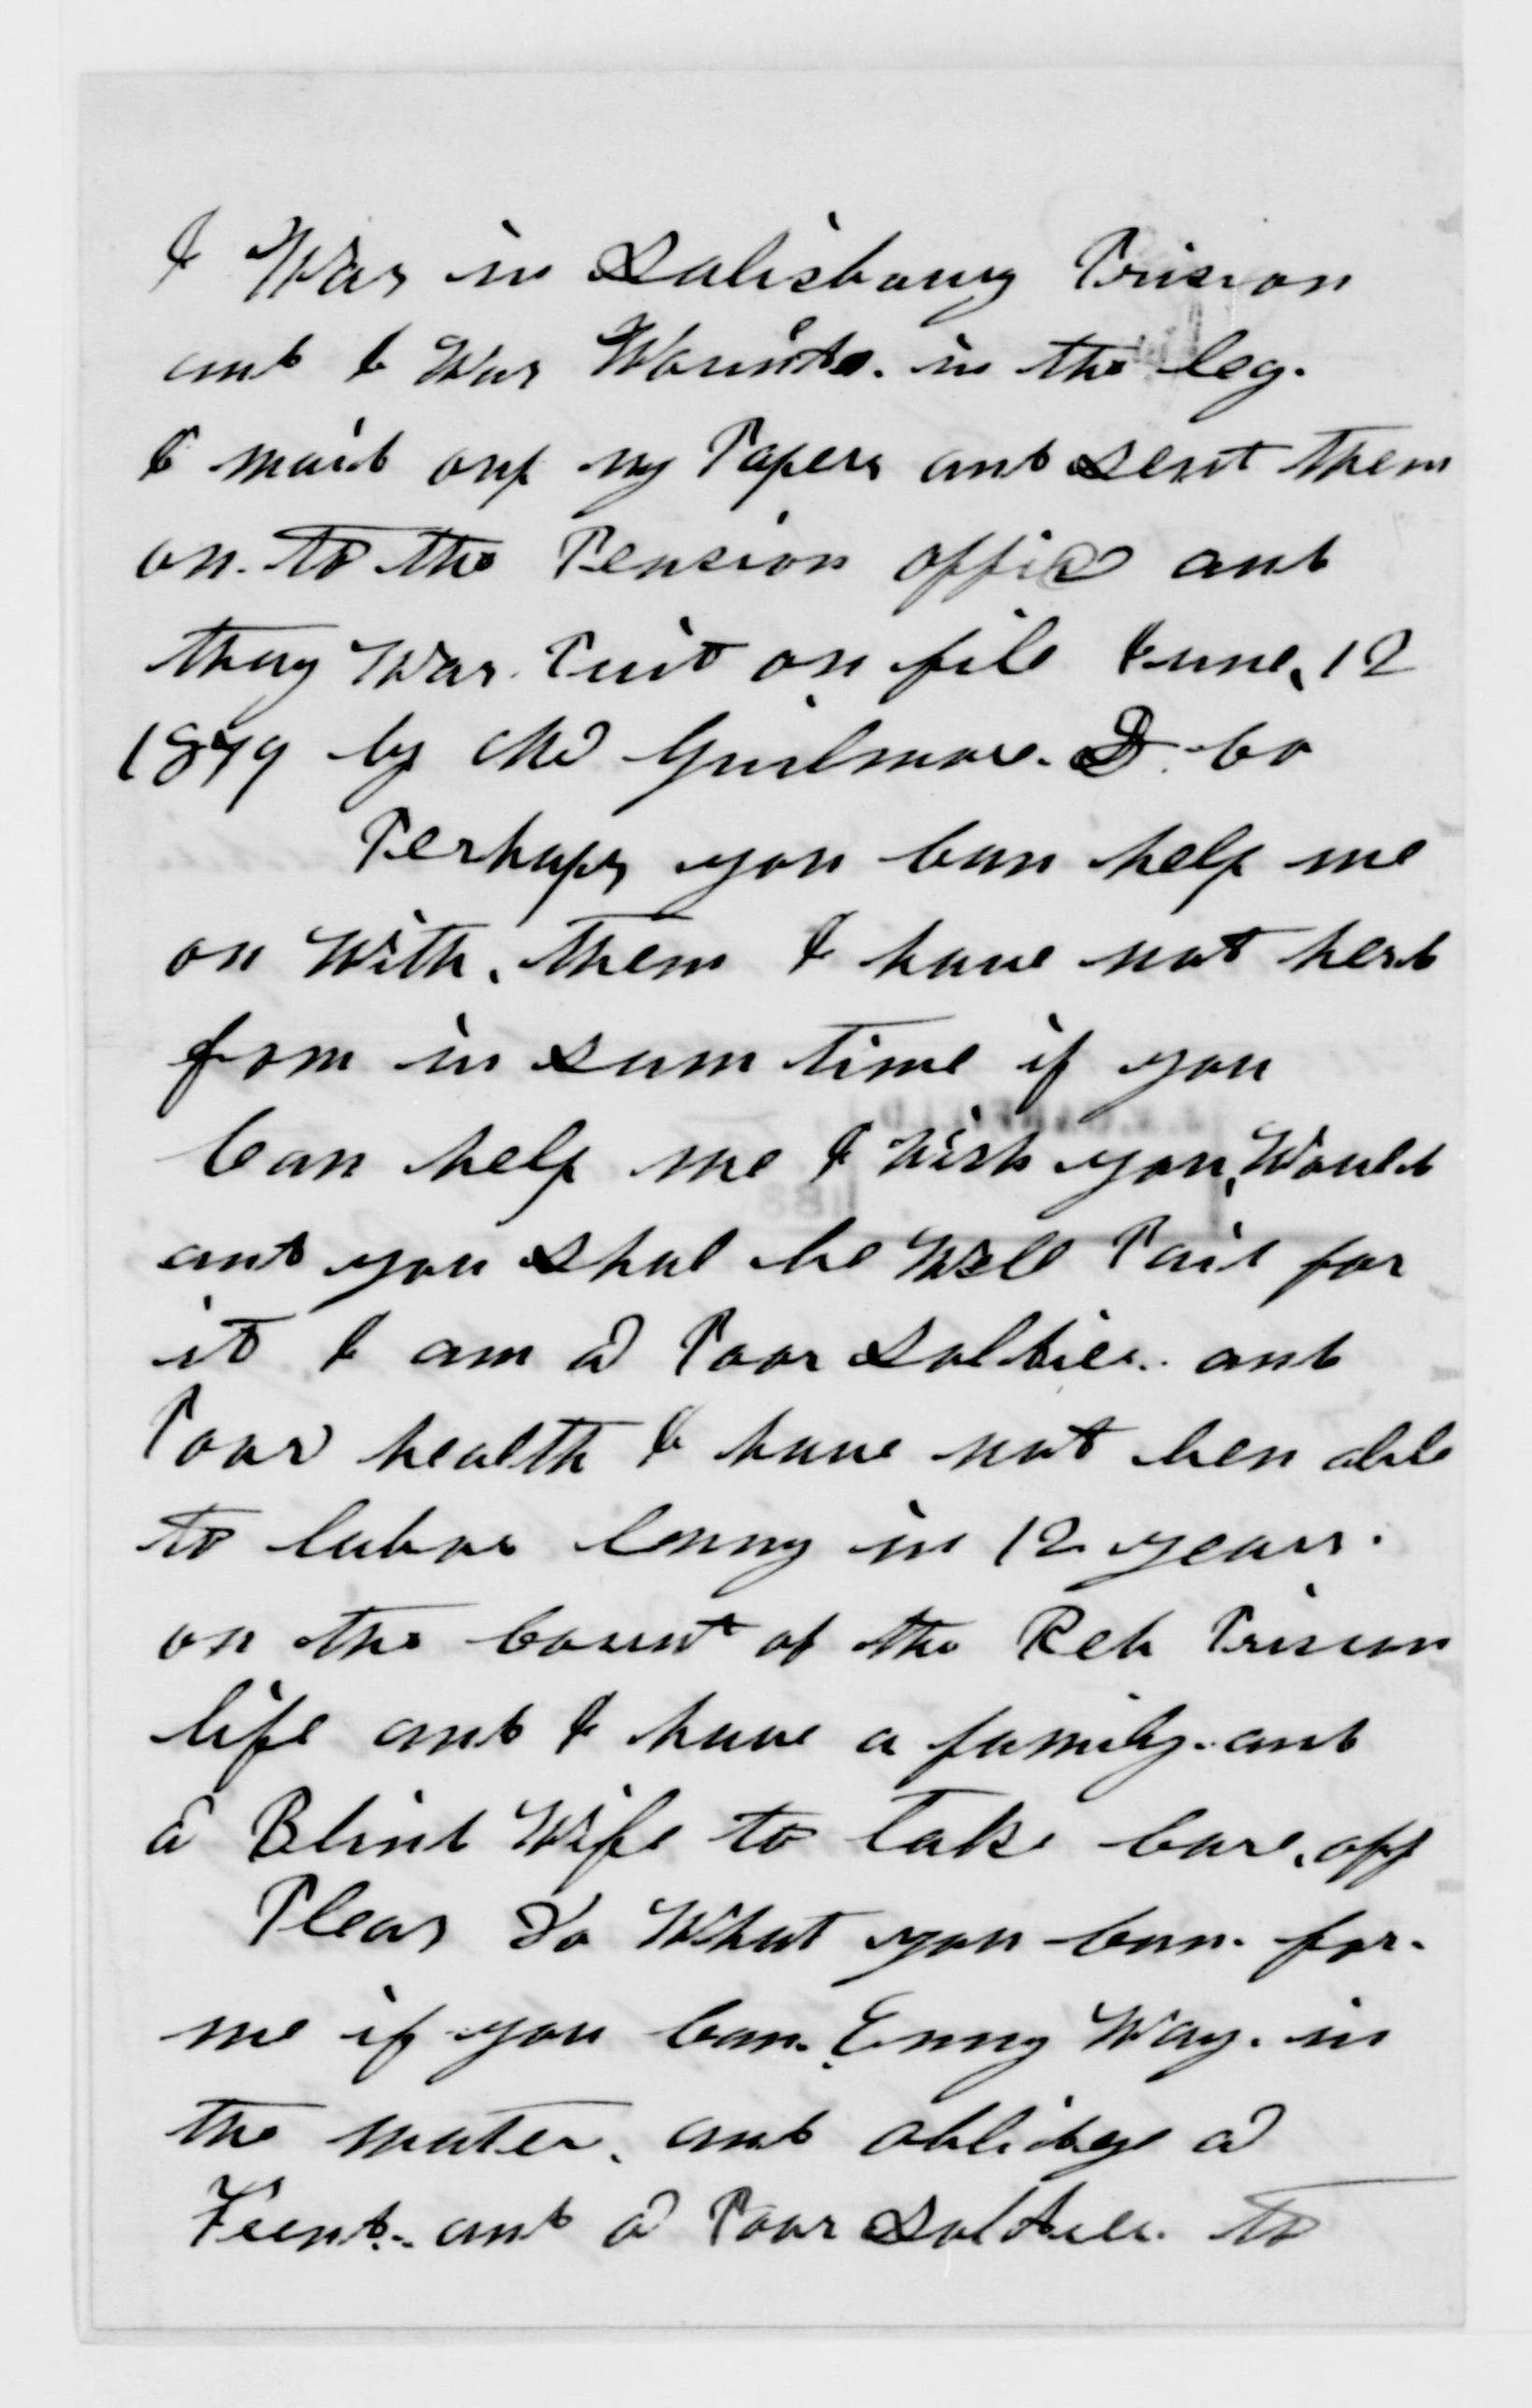 I War in Salisbury Prision
ant I War Wounte. in the leg.
I mait oup my Papers ant sent them
on. to the Pension office ant
thay War. Puit on file June, 12
1879 by Mr Guilmore. & Co
Perhaps you Can help me
on With. them I have not hert
from in sum time if you
Can help me I Wish you, Would
ant you shal be Well Pait for
it I am a Poor Soltier. ant
Poor health I have not ben able
to labor Enny in 12 years.
on the Count of the Reb Prision
life ant I have a family. ant
a Blint Wife to take Care. off
Pleas Do What you Can. for.
me if you Can. Enny Way. in
the mater. ant oblidge a
Frent. ant a Poor Soltier. to